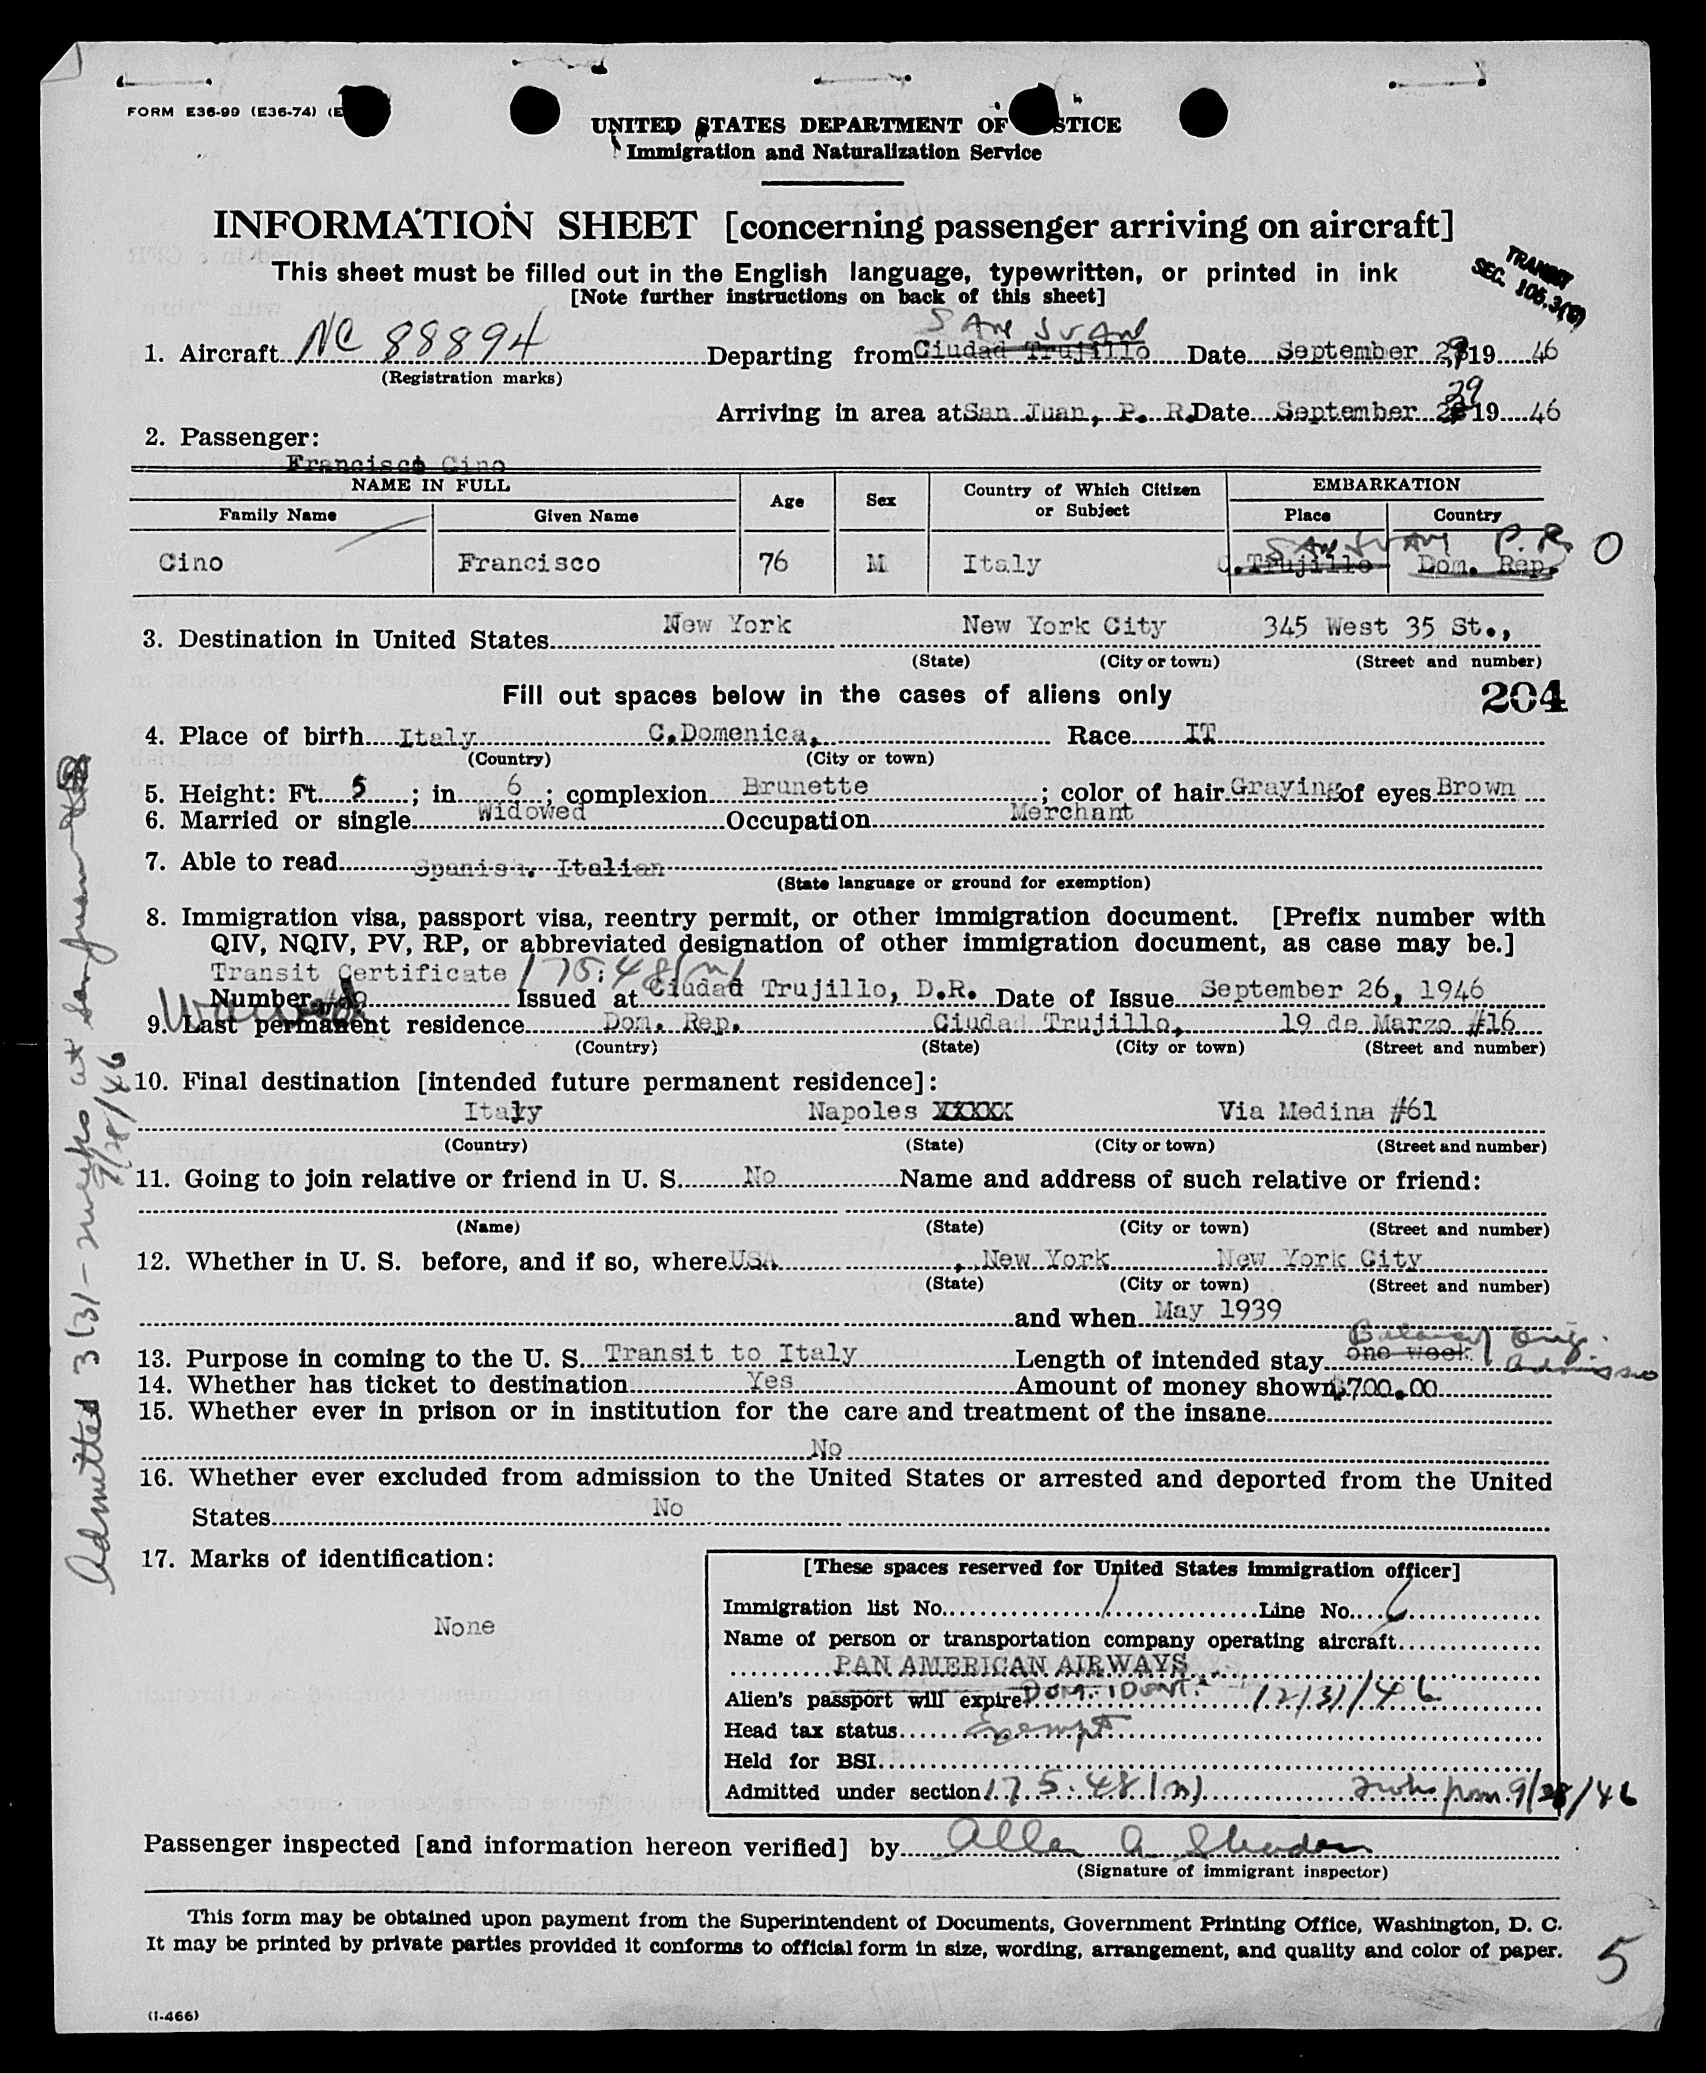 FORM E36-99 (E36-74) (E
UNITED STATES DEPARTMENT OF JUSTICE
Immigration and Naturalization Service
INFORMATION SHEET [concerning passenger arriving on aircraft]
This sheet must be filled out in the English language, typewritten, or printed in ink
[Note further instructions on back of this sheet]
TRANSIT
SEC. 105.3(C)
SAN JUAN
1. Aircraft NC 88894 Departing from Ciudad Trujillo Date September 29 1946
(Registration marks)
29
Arriving in area at San Juan, P. R. Date September 1946
2. Passenger:
Francisco Cino
NAME IN FULL Age Sex Country of Which Citizen or Subject EMBARKATION
Family Name Given Name Place Country
SAN JUAN P.R.
Cino Francisco 76 M Italy C.Trujillo Dom. Rep. O
3. Destination in United States New York New York City 345 West 35 St.,
(State) (City or town) (Street and number)
Fill out spaces below in the cases of aliens only 204
4. Place of birth Italy C.Domenica, Race IT
(Country) (City or town)
5. Height: Ft. 5; in. 6; complexion Brunette; color of hair Graying of eyes Brown
6. Married or single Widowed Occupation Merchant
7. Able to read Spanish. Italian
(State language or ground for exemption)
8. Immigration visa, passport visa, reentry permit, or other immigration document. [Prefix number with
QIV, NQIV, PV, RP, or abbreviated designation of other immigration document, as case may be.]
Transit Certificate 175.48(m)
Number Issued at Ciudad Trujillo, D.R. Date of Issue September 26, 1946
9. Last permanent residence Dom. Rep. Ciudad Trujillo, 19 de Marzo #16
(Country) (State) (City or town) (Street and number)
10. Final destination [intended future permanent residence]:
Italy Napoles XXXXX Via Medina #61
(Country) (State) (City or town) (Street and number)
11. Going to join relative or friend in U. S. No Name and address of such relative or friend:
(Name) (State) (City or town) (Street and number)
12. Whether in U. S. before, and if so, where USA, New York New York City
(State) (City or town) (Street and number)
and when May 1939
Balance Orig.
13. Purpose in coming to the U. S. Transit to Italy Length of intended stay one week Admission
14. Whether has ticket to destination Yes Amount of money shown $700.00
15. Whether ever in prison or in institution for the care and treatment of the insane
No
16. Whether ever excluded from admission to the United States or arrested and deported from the United
States No
17. Marks of identification:
None
[These spaces reserved for United States immigration officer]
Immigration list No. 1 Line No. 6
Name of person or transportation company operating aircraft
PAN AMERICAN AIRWAYS
Alien's passport will expire Dom. Ident. 12/31/46
Head tax status Exempt
Held for BSI
Admitted under section 175.48(m) 2 wks from 9/28/46
Passenger inspected [and information hereon verified] by Allen A
(Signature of immigrant inspector)
This form may be obtained upon payment from the Superintendent of Documents, Government Printing Office, Washington, D. C.
It may be printed by private parties provided it conforms to official form in size, wording, arrangement, and quality and color of paper.
5
(I-466)
Admitted 3(3) - 2 weeks at San Juan
9/28/46